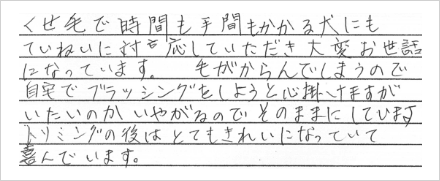 くせ毛で時間も手間もかかる犬にも
ていねいに対応していただき大変お世話
になっています。 毛がからんでしまうので
自宅でブラッシングをしようと心掛けますが
いたいのかいやがるのでそのままにしています
トリミングの後はとてもきれいになっていて
喜んでいます。